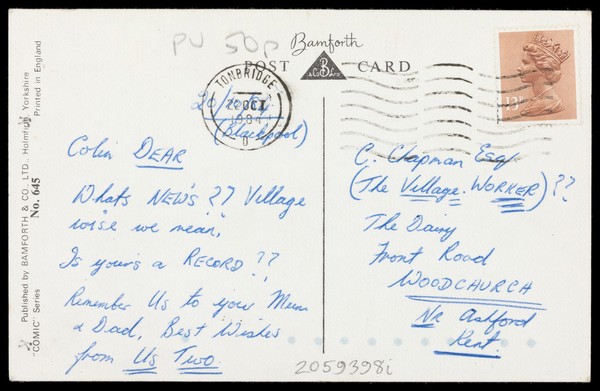 PU 50p
Bamforth
POST CARD
B
& Co Ld
TONBRIDGE
OCT
1984
D
13P
20/10/84
(Blackpool)
Colin DEAR
Whats NEW'S ?? Village
wise we mean,
Is yours a RECORD ??
Remember Us to your Mum
& Dad, Best Wishes
from Us Two.
C. Chapman Esq
(The Village. WORKER) ??
The Dairy
Front Road
WOODCHURCH
Nr Ashford
Kent.
2059398i
Published by BAMFORTH & CO., LTD., Holmfirth, Yorkshire
"COMIC" Series No. 645 Printed in England